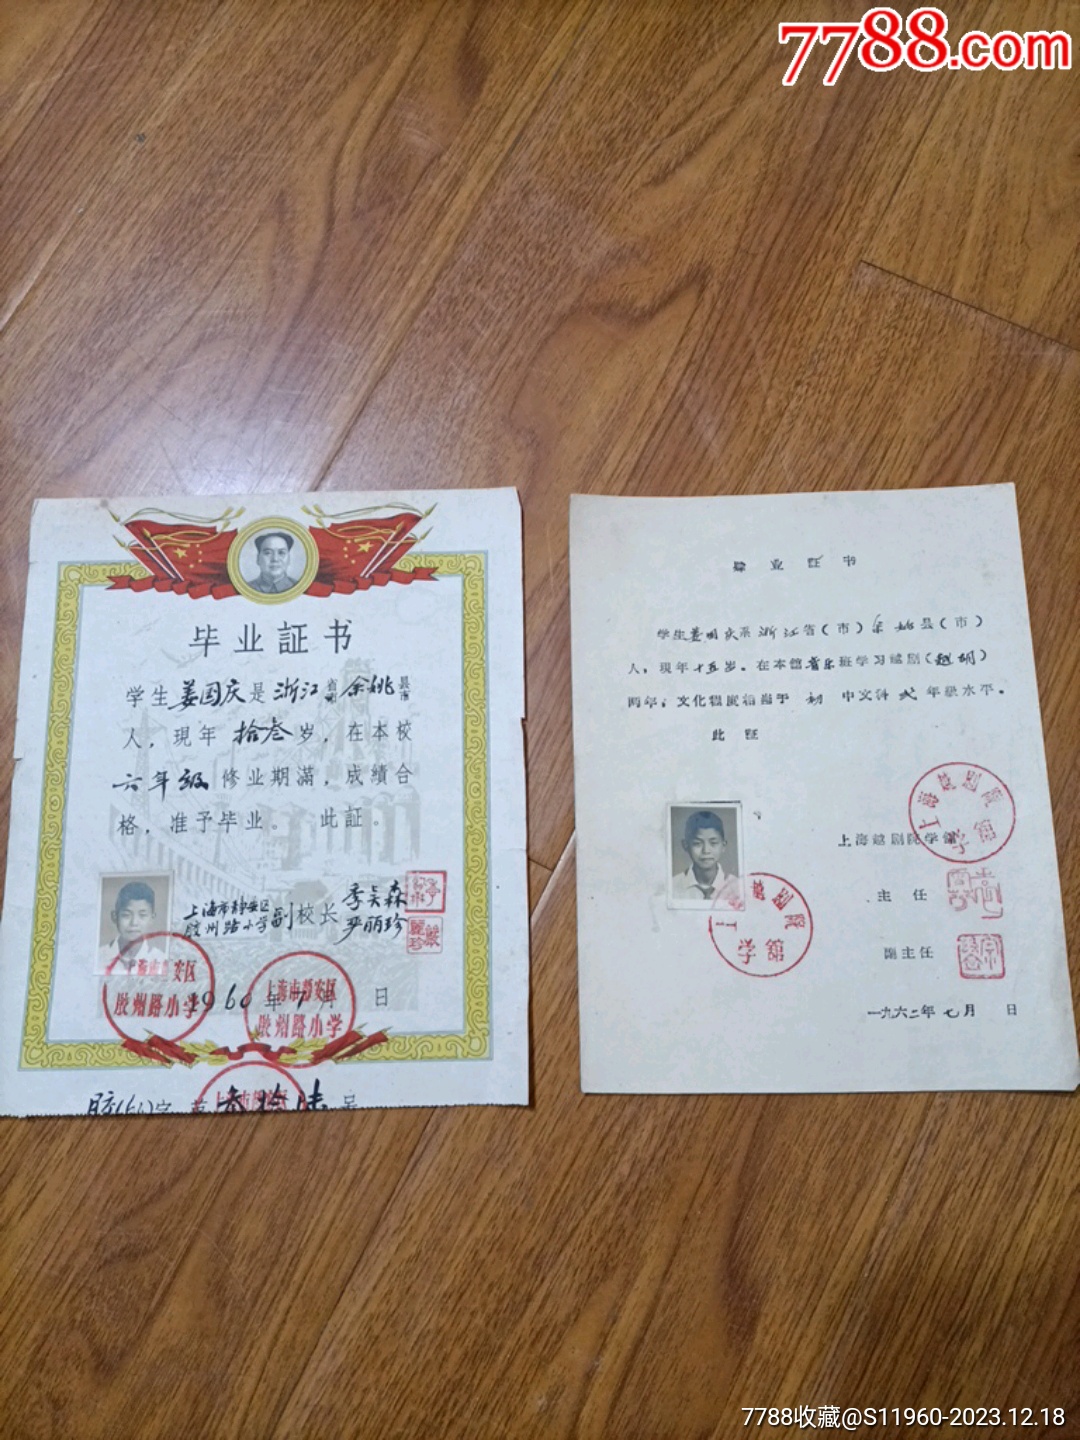 7788.com
毕业証书
学生姜国庆是浙江省余姚县市
人，現年拾叁岁，在本校
六年级修业期滿，成績合
格，准予毕业。此証。
上海市静安区
胶州路小学副校长
季吴森
严丽珍
1960年7月日
上海市静安区
胶州路小学
上海市静安区
胶州路小学
叁拾陆号
肄业证书
学生姜国庆系浙江省（市）余姚县（市）
人，现年十五岁。在本馆音乐班学习越剧（越胡）
两年，文化程度相当于初中文科弍年级水平。
此证
上海越剧院学馆
主任
副主任
一九六二年七月日
上海越剧院
学馆
上海越剧院
学馆
7788收藏@S11960-2023.12.18